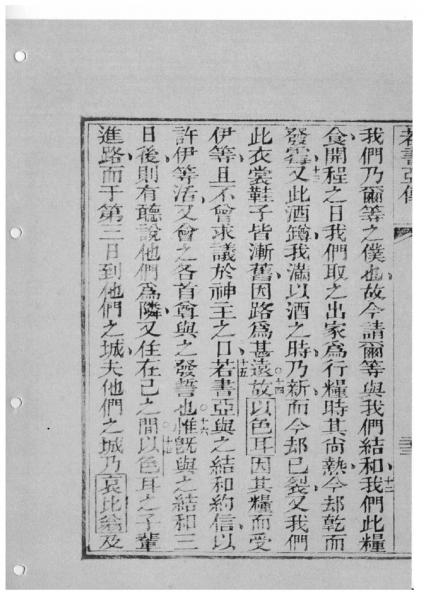 若書亞傳
我們乃爾等之僕也故今請爾等與我們結和十二我們此糧
食開程之日我們取之出家爲行糧時其尚熱今却乾而
發霉十三又此酒罇我滿以酒之時乃新而今却已裂又我們
此衣裳鞋子皆漸舊因路爲甚遠十四故以色耳因其糧而受
伊等且不曾求議於神主之口十五若書亞與之結和約信以
許伊等活又會之各首尊與之發誓也十六惟旣與之結和三
日後則有聽說他們爲隣又住在己之間十七以色耳之子輩
進路而于第三日到他們之城夫他們之城乃及